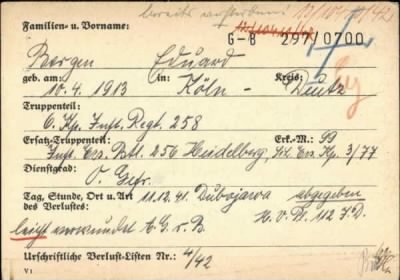 bereits
Familien- u. Vorname:
G-B 297/0700
Bergen Eduard
geb. am: in: Kreis:
10.4.1913 Köln - Deutz
Truppenteil:
6. Kp. Inft. Regt. 258
Ersatz-Truppenteil: Erk.-M.: 99
Inft. Ers. Btl. 256 Heidelberg, Ers. Kp. 3/77
Dienstgrad:
O. Gefr.
Tag, Stunde, Ort u. Art 11.12.41. Dubojawa abgegeben
des Verlustes: H.V.Pl. 112 J.D.
leicht verwundet
Urschriftliche Verlust-Listen Nr.: 4/42
V 1